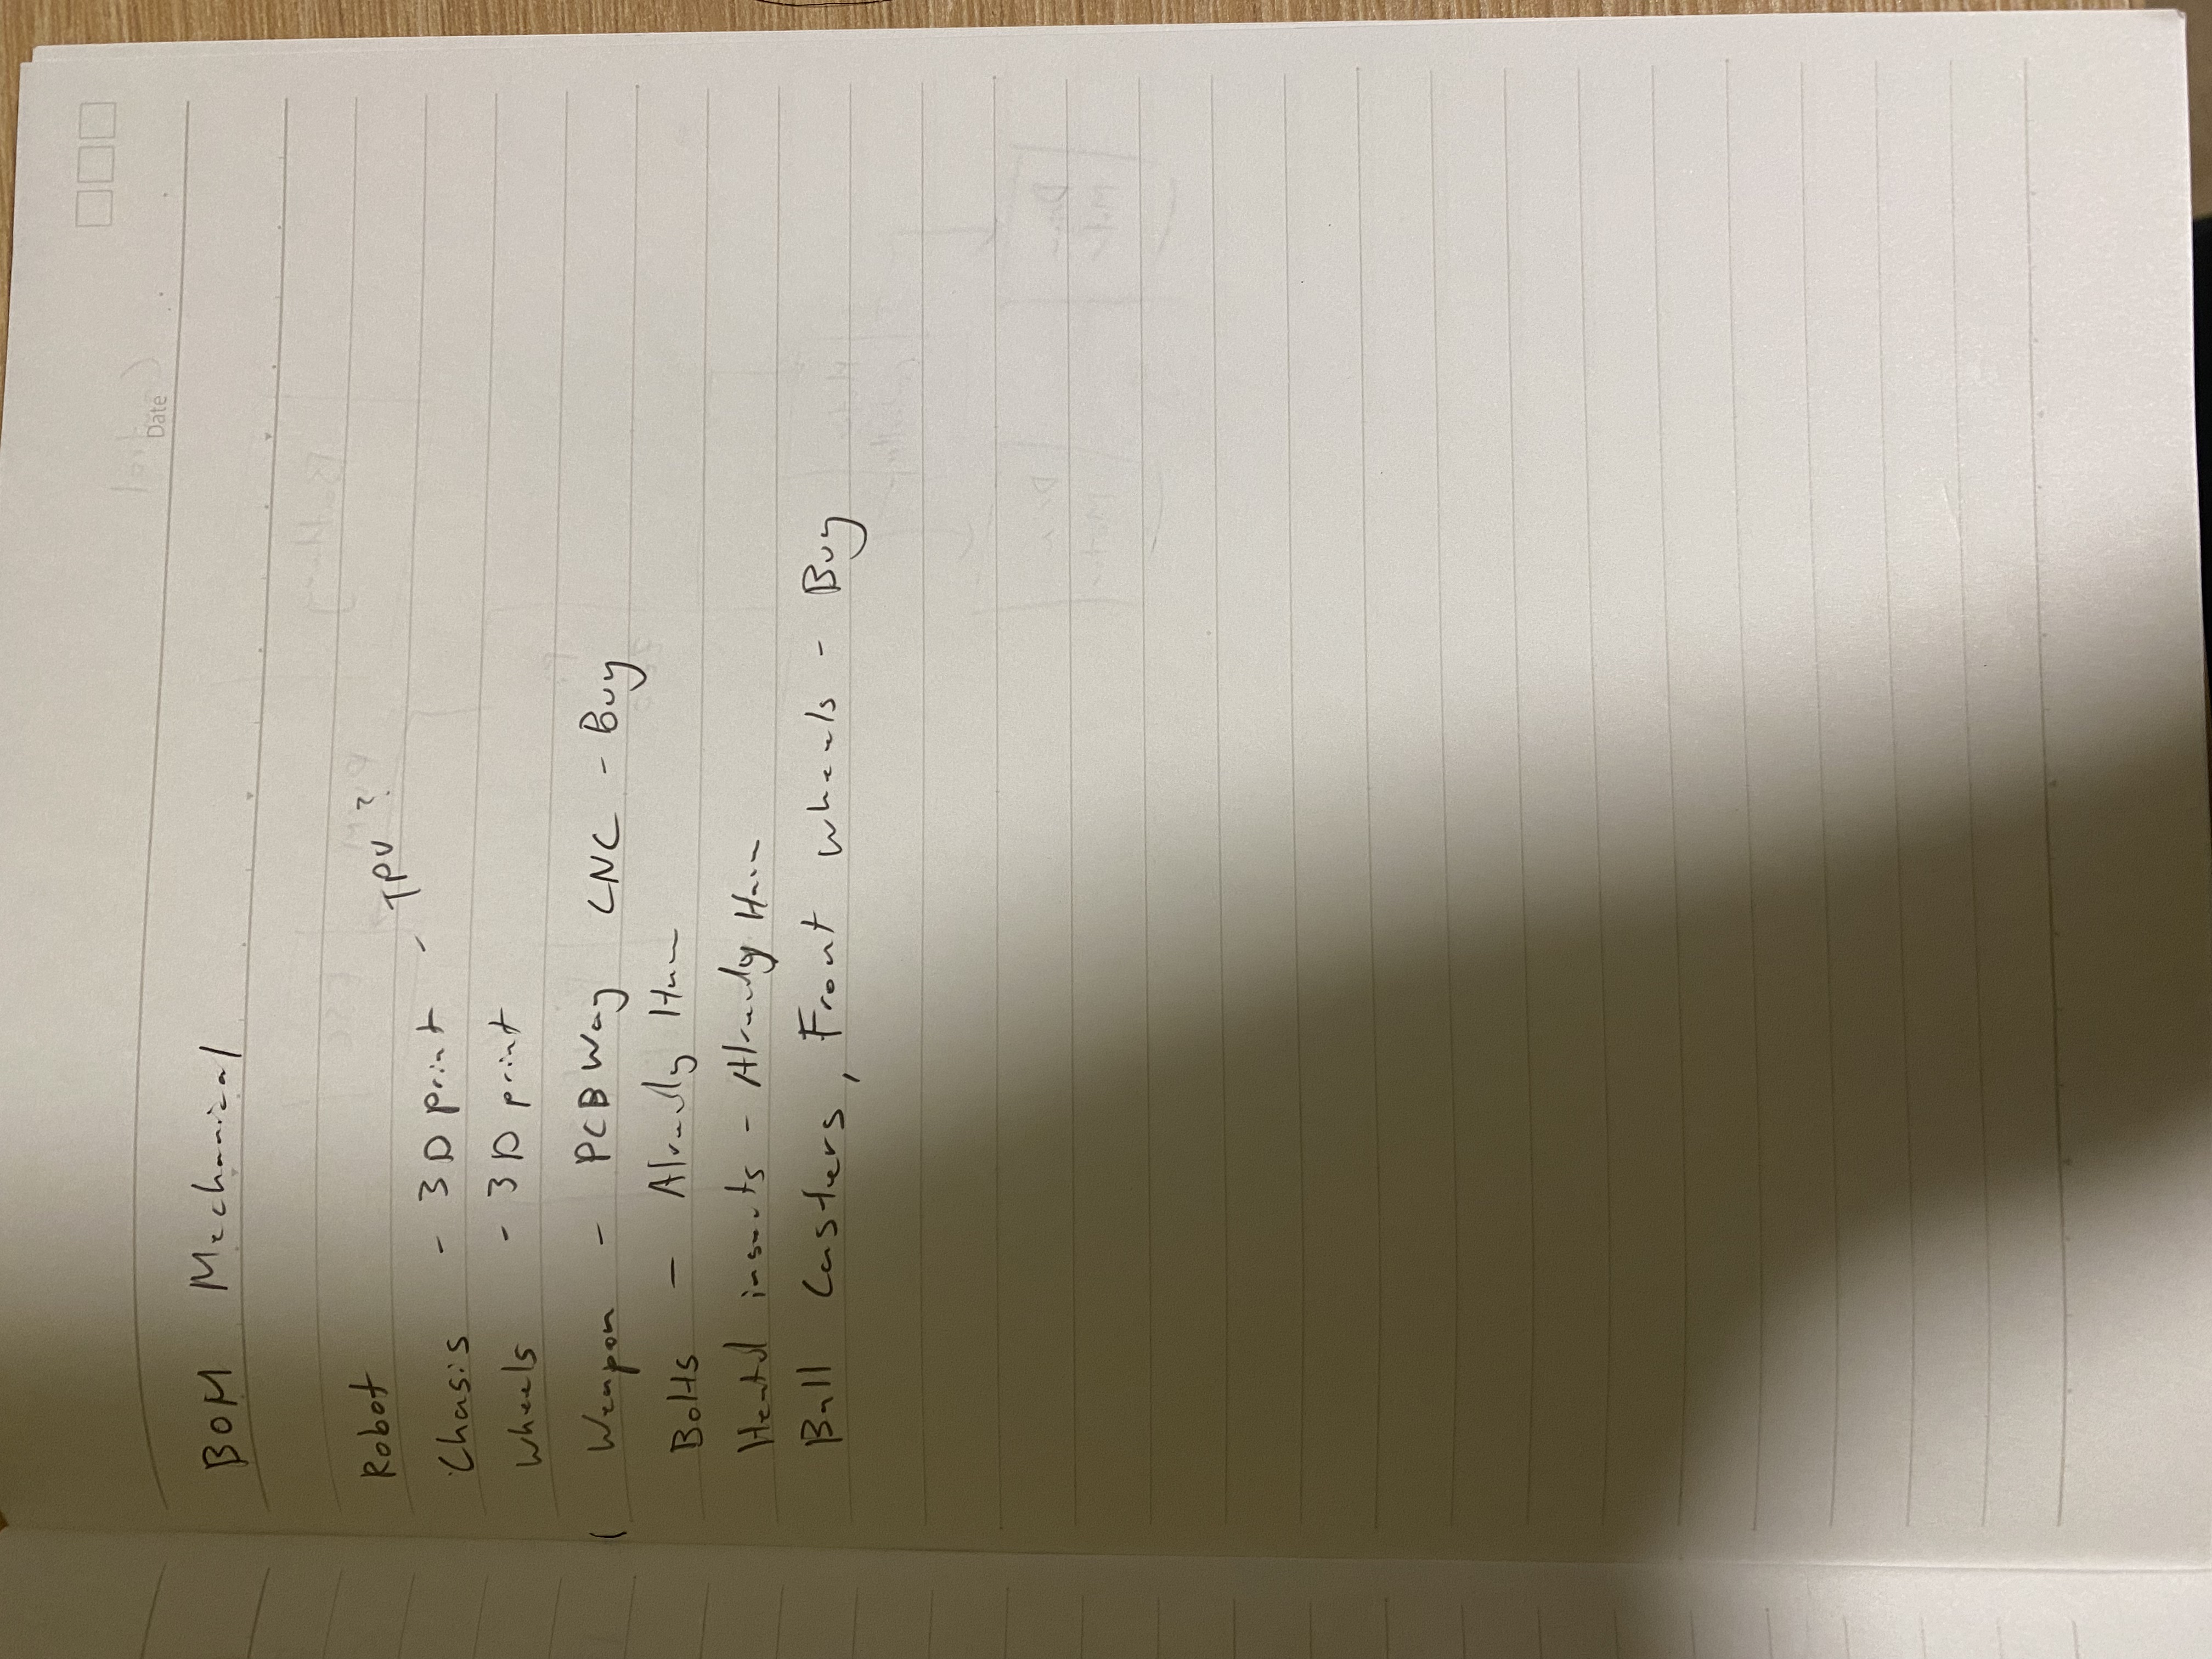 Date
BOM Mechanical
Robot
Chasis - 3D print - TPU?
Wheels - 3D print
Weapon - PCBWay CNC - Buy
Bolts - Already Have
Heatd inserts - Already Have
Ball Casters, Front wheels - Buy